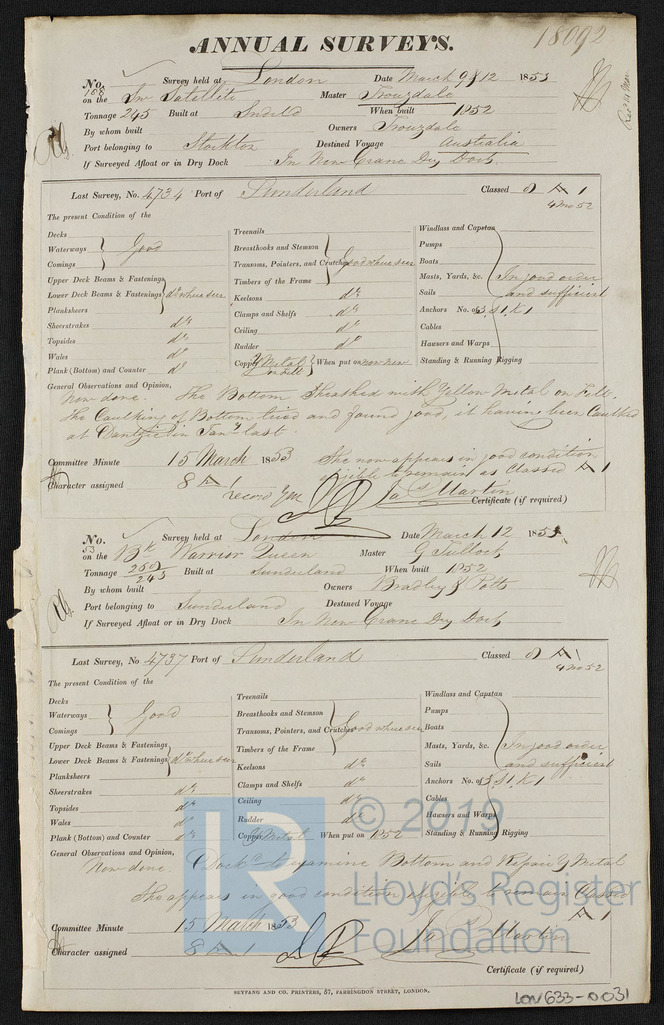 18092
ANNUAL SURVEYS.
No. Survey held at London Date March 9 & 12 1853
on the Sw Satellite Master Trouzdale
Tonnage 245 Built at Sndrld When built 1852
By whom built Owners Trouzdale
Port belonging to Stockton Destined Voyage Australia
If Surveyed Afloat or in Dry Dock In New Crane Dry Dock
Last Survey, No. 4734 Port of Sunderland Classed A 1
4 mo 52
The present Condition of the
Decks
Waterways Good
Comings
Upper Deck Beams & Fastenings
Lower Deck Beams & Fastenings do where seen
Planksheers
Sheerstrakes do
Topsides do
Wales do
Plank (Bottom) and Counter do
Treenails
Breasthooks and Stemson
Transoms, Pointers, and Crutches Good where seen
Timbers of the Frame
Keelsons do
Clamps and Shelfs do
Ceiling do
Rudder do
Copper Y Metal on felt When put on now new
Windlass and Capstan
Pumps
Boats
Masts, Yards, &c. In good order
Sails and sufficient
Anchors No. of 3 S 1 K 1
Cables
Hausers and Warps
Standing & Running Rigging
General Observations and Opinion,
Now done. The Bottom Sheathed with Yellow Metal on Felt.
The Caulking of Bottom tried and found good, it having been Caulked
at Dantzic in Jany last.
Committee Minute 15 March 1853 She now appears in good condition
eligible to remain as Classed A 1
Character assigned 8 A 1
record YM Jas Martin
Certificate (if required)
No. Survey held at London Date March 12 1853
53
on the Bk Warrior Queen Master G Tulloch
Tonnage 259/245 Built at Sunderland When built 1852
By whom built Owners Bradley & Potts
Port belonging to Sunderland Destined Voyage
If Surveyed Afloat or in Dry Dock In New Crane Dry Dock
Last Survey, No 4737 Port of Sunderland Classed A 1
4 mo 52
The present Condition of the
Decks
Waterways Good
Comings
Upper Deck Beams & Fastenings
Lower Deck Beams & Fastenings do where seen
Planksheers
Sheerstrakes do
Topsides do
Wales do
Plank (Bottom) and Counter do
Treenails
Breasthooks and Stemson
Transoms, Pointers, and Crutches Good where seen
Timbers of the Frame
Keelsons do
Clamps and Shelfs do
Ceiling do
Rudder do
Copper Y Metal When put on 1852
Windlass and Capstan
Pumps
Boats
Masts, Yards, &c. In good order
Sails and sufficient
Anchors No. of 3 S 1 K 1
Cables
Hausers and Warps
Standing & Running Rigging
General Observations and Opinion,
Now done. Docked to examine Bottom and Repair Y Metal
She appears in good condition eligible to remain Classed
A 1
Committee Minute 15 March 1853
Character assigned 8 A 1 Jas Martin
Certificate (if required)
SEYFANG AND CO. PRINTERS, 57, FARRINGDON STREET, LONDON.
LON633-0031
© 2019
LR
Lloyd's Register
Foundation